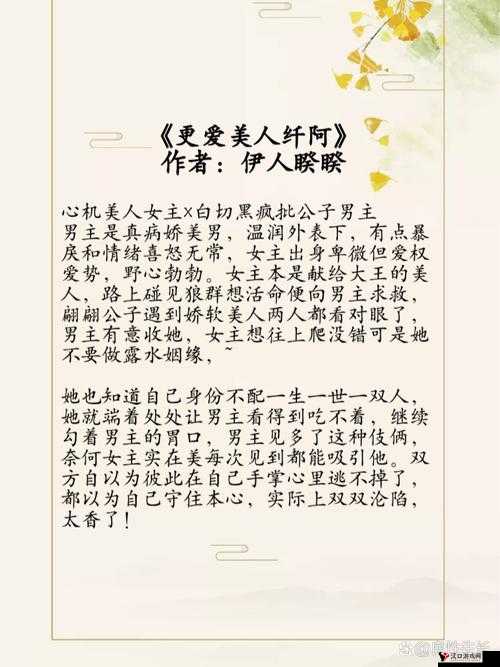 《更爱美人纤阿》
作者：伊人睽睽
心机美人女主x白切黑疯批公子男主
男主是真病娇美男，温润外表下，有点暴
戾和情绪喜怒无常，女主出身卑微但爱权
爱势，野心勃勃。女主本是献给大王的美
人，路上碰见狼群想活命便向男主求救，
翩翩公子遇到娇软美人两人都看对眼了，
男主有意收她，女主想往上爬没错可是她
不要做露水姻缘，~
她也知道自己身份不配一生一世一双人，
她就端着处处让男主看得到吃不着，继续
勾着男主的胃口，男主见多了这种伎俩，
奈何女主实在美每次见到都能吸引他。双
方自以为彼此在自己手掌心里逃不掉了，
都以为自己守住本心，实际上双双沦陷，
太香了！
汉口游戏网